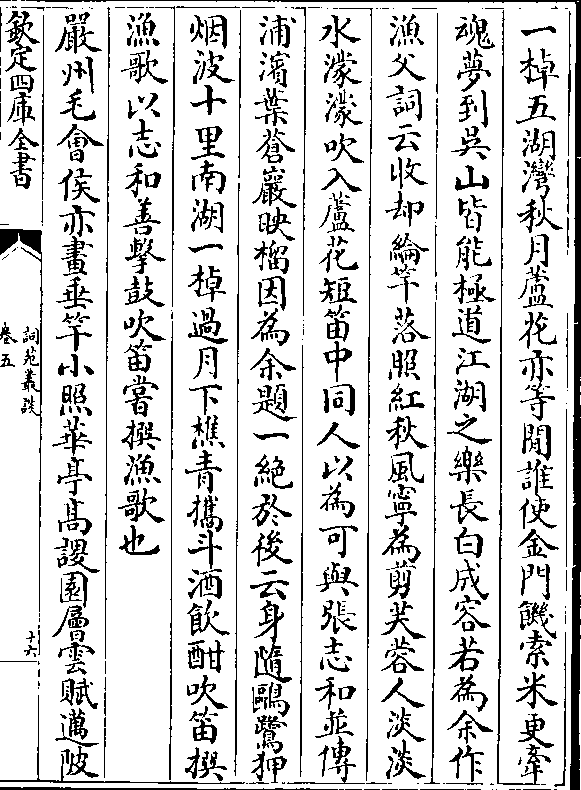 一棹五湖灣秋月蘆花亦等閒誰使金門饑索米更牽
魂夢到吳山皆能極道江湖之樂長白成容若為余作
漁父詞云收却綸竿落照紅秋風寧為剪芙蓉人淡淡
水濛濛吹入蘆花短笛中同人以為可與張志和並傳
浦濱葉蒼巖映榴因為余題一絶於後云身隨鷗鷺狎
烟波十里南湖一棹過月下樵青攜斗酒飲酣吹笛撰
漁歌以志和善擊鼓吹笛嘗撰漁歌也
嚴州毛會侯亦畫垂竿小照華亭高謖園層雲賦邁陂
欽定四庫全書
詞苑叢談
卷五
十六